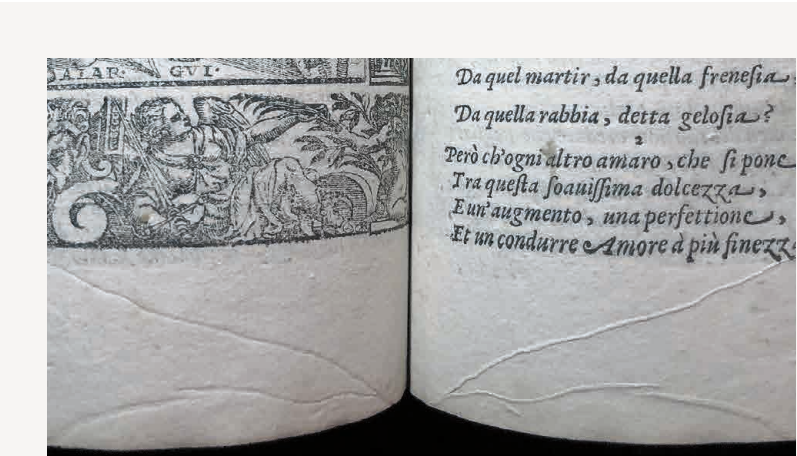 ALAR· GVI·
Da quel martir, da quella freneſia,
Da quella rabbia, detta geloſia?
2
Però ch'ogni altro amaro, che ſi pone
Tra queſta ſoauiſſima dolcezza,
E un'augmento, una perfettione,
Et un condurre Amore à più finezz